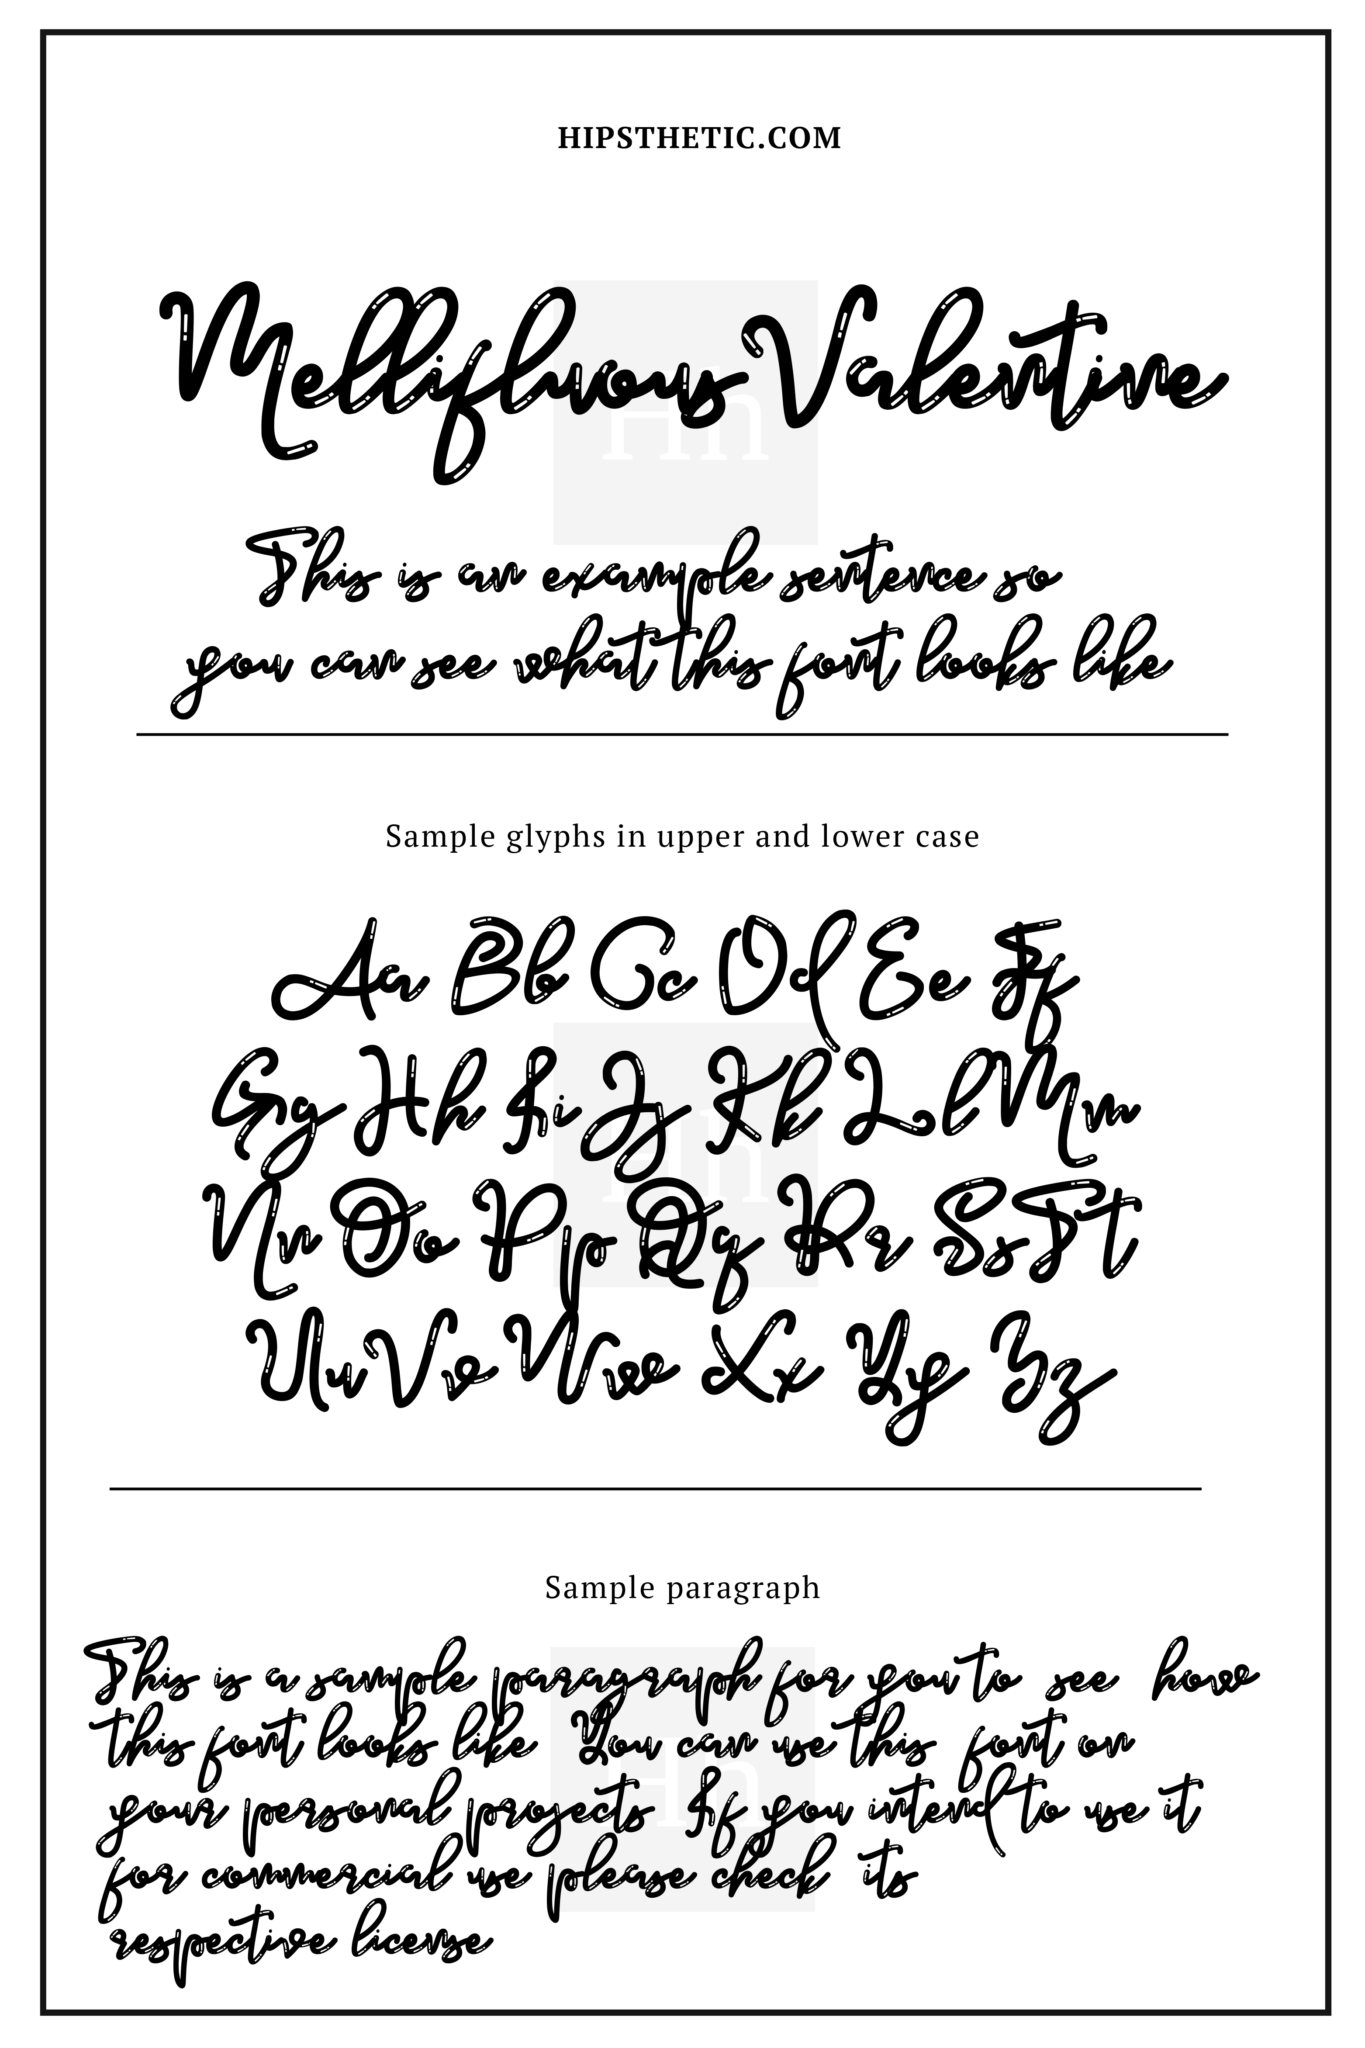 HIPSTHETIC.COM
Mellifluous Valentine
This is an example sentence so
you can see what this font looks like
Sample glyphs in upper and lower case
Aa Bb Cc Dd Ee Ff
Gg Hh Ii Jj Kk Ll Mm
Nn Oo Pp Qq Rr Ss Tt
Uu Vv Ww Xx Yy Zz
Sample paragraph
This is a sample paragraph for you to see how
this font looks like You can use this font on
your personal projects If you intend to use it
for commercial use please check its
respective license
Hh
Hh
Hh